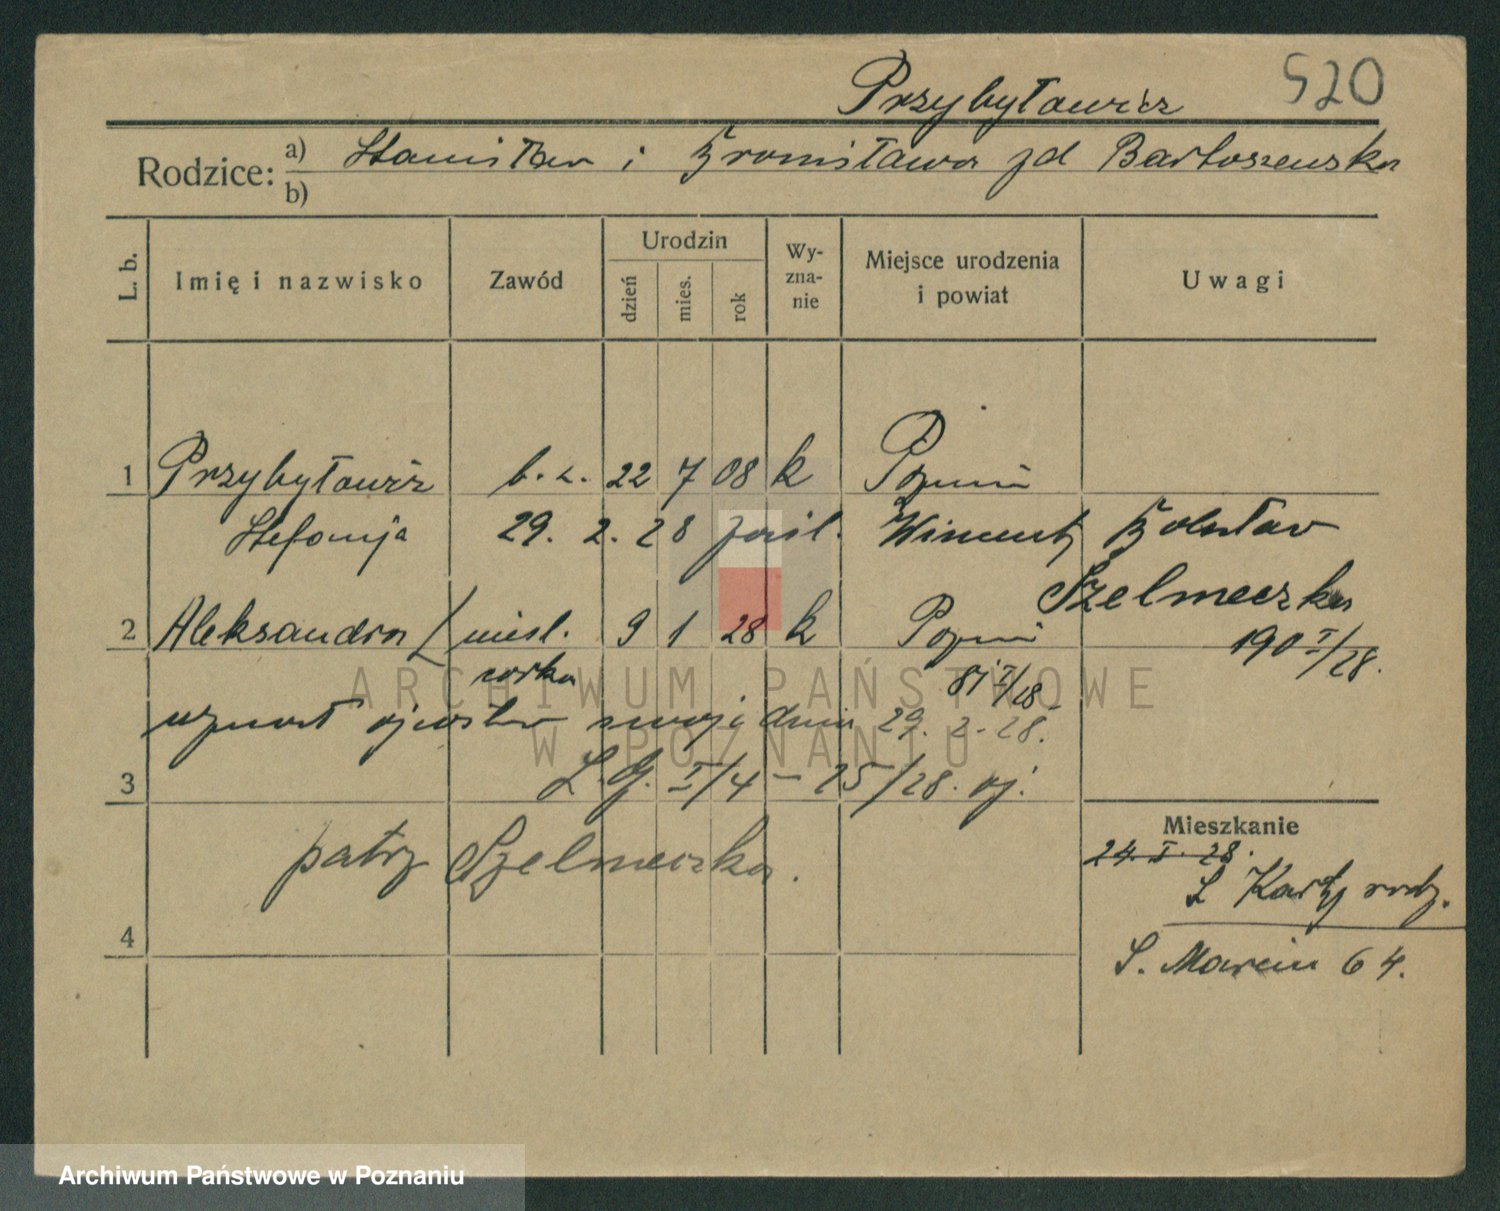 Przybyłowicz 520
Rodzice: a) Stanisław i Bronisława zd Bartoszewska
b)
L. b. Imię i nazwisko Zawód Urodzin dzień mies. rok Wyznanie Miejsce urodzenia i powiat Uwagi
1 Przybyłowicz b. z. 22 7 08 k Poznań
Stefanja 29. 2. 28 zaśl. Wincenty Bolesław
Szelmeczka
2 Aleksandra nieśl. 9 1 28 k Poznań 190 I/28.
córka 81 I/28
uznał ojcostwo swoje dnia 29. 2. 28.
3 L. G. I/4 – 15/28.
patrz Szelmeczka.
Mieszkanie
24. I. 28.
Z Karty rodz.
4
S. Marcin 64.
ARCHIWUM PAŃSTWOWE
W POZNANIU
Archiwum Państwowe w Poznaniu